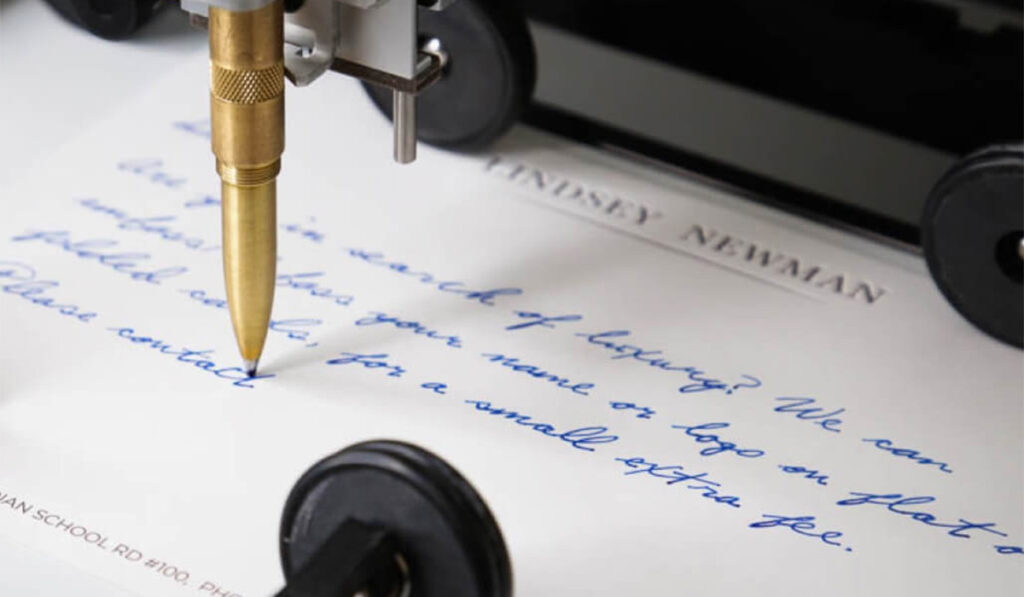 LINDSEY NEWMAN
Are you in search of luxury? We can
emboss your name or logo on flat
folded cards, for a small extra fee.
Please contact
SCHOOL RD #100,